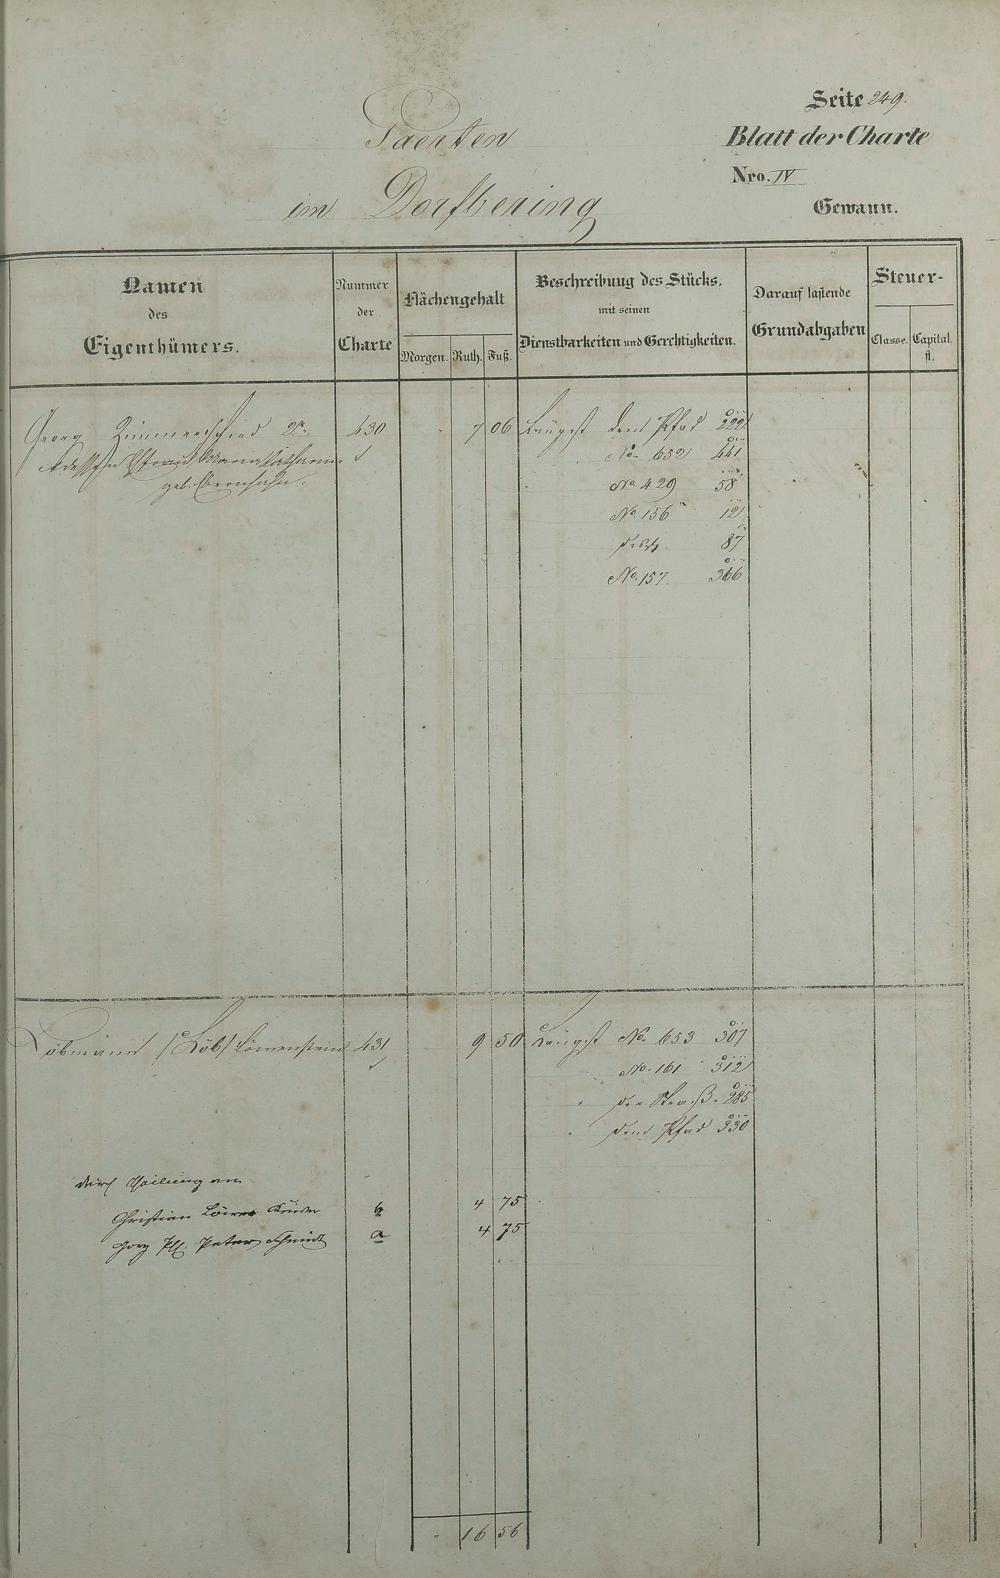 Seite 249.
Gaerten
Blatt der Charte
Nro. IV
im Dorfbering
Gewann.
Namen
des
Eigenthümers.
Nummer
der
Charte
Flächengehalt
Morgen. Ruth. Fuß.
Beschreibung des Stücks,
mit seinen
Dienstbarkeiten und Gerechtigkeiten.
Darauf lastende
Grundabgaben
Steuer-
Classe. Capital.
fl.
Georg Zimmerschied 2r 430 7 06 Längst dem Pfad 222
dessen Frau Anna Katharina No 652 441
geb. No. 429 58
No. 156 12
87
No. 157 366
Löbmann /Löb/ Löwenstein 431 9 50 Längst No 653 307
No. 161 312
der Straß. 285
dem Pfad 330
durch Theilung an
Christian b 4 75
Peter Schmidt a 4 75
16 56